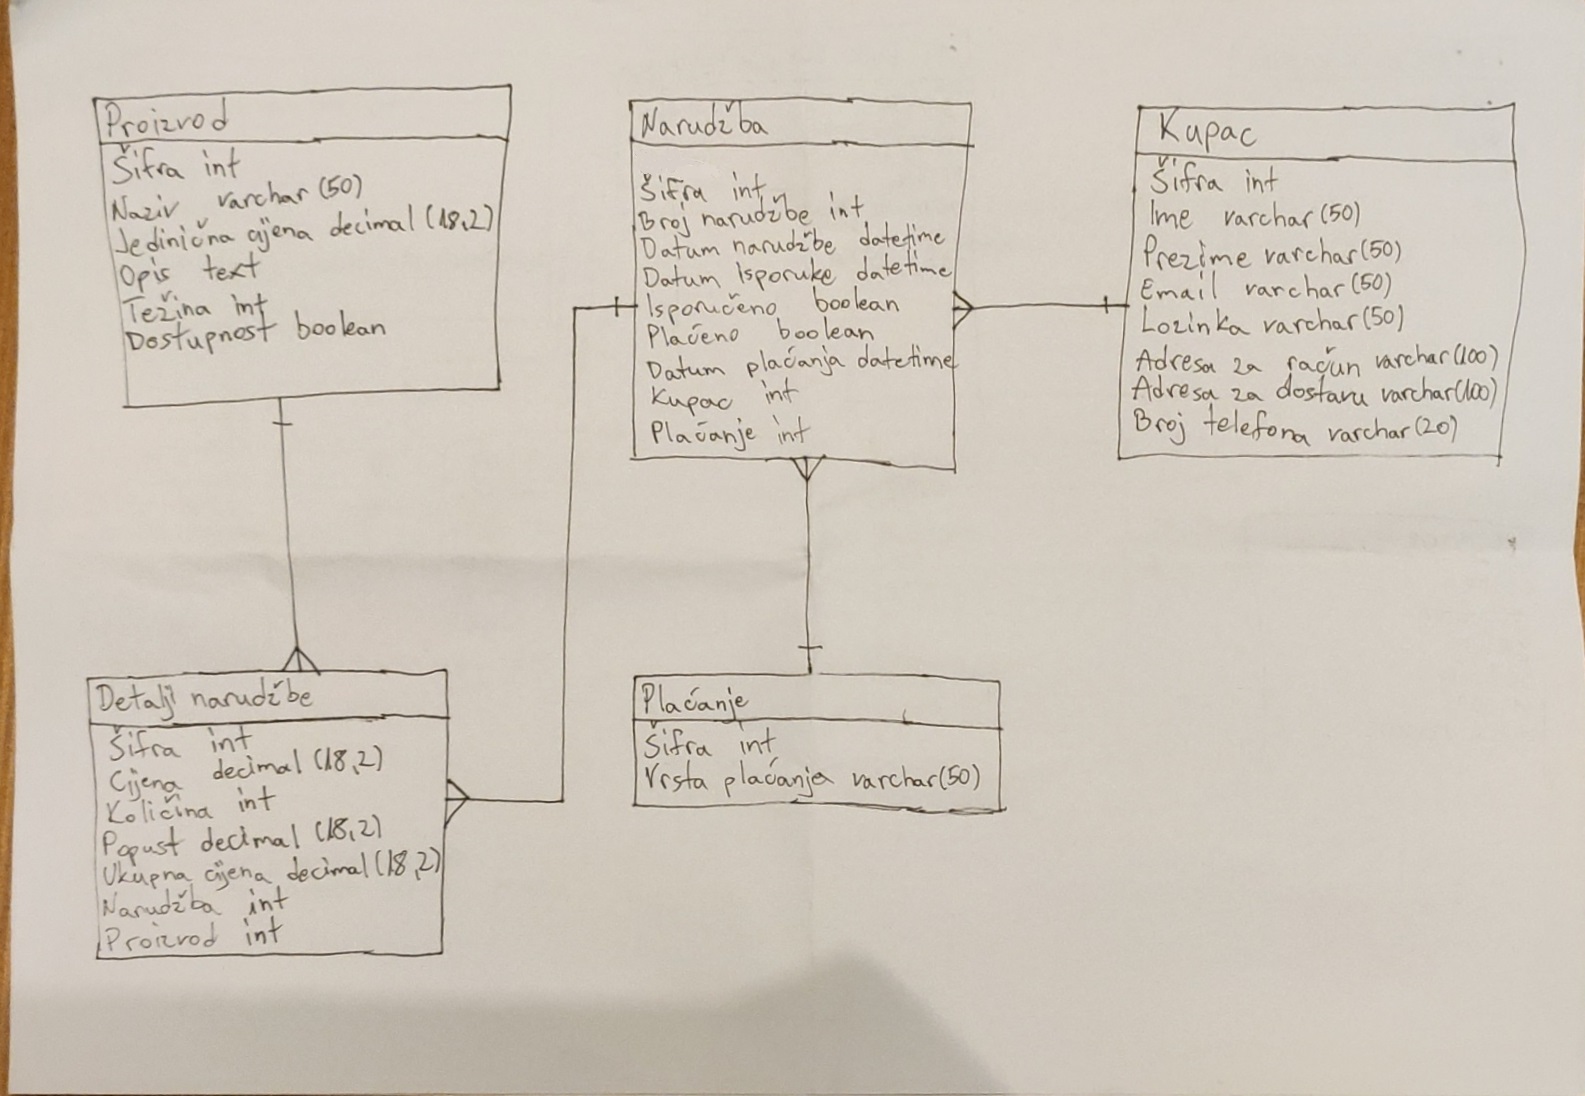 Proizvod
Šifra int
Naziv varchar(50)
Jedinična cijena decimal(18,2)
Opis text
Težina int
Dostupnost boolean
Narudžba
Šifra int
Broj narudžbe int
Datum narudžbe datetime
Datum Isporuke datetime
Isporučeno boolean
Plaćeno boolean
Datum plaćanja datetime
Kupac int
Plaćanje int
Kupac
Šifra int
Ime varchar(50)
Prezime varchar(50)
Email varchar(50)
Lozinka varchar(50)
Adresa za račun varchar(100)
Adresa za dostavu varchar(100)
Broj telefona varchar(20)
Detalji narudžbe
Šifra int
Cijena decimal(18,2)
Količina int
Popust decimal(18,2)
Ukupna cijena decimal(18,2)
Narudžba int
Proizvod int
Plaćanje
Šifra int
Vrsta plaćanja varchar(50)